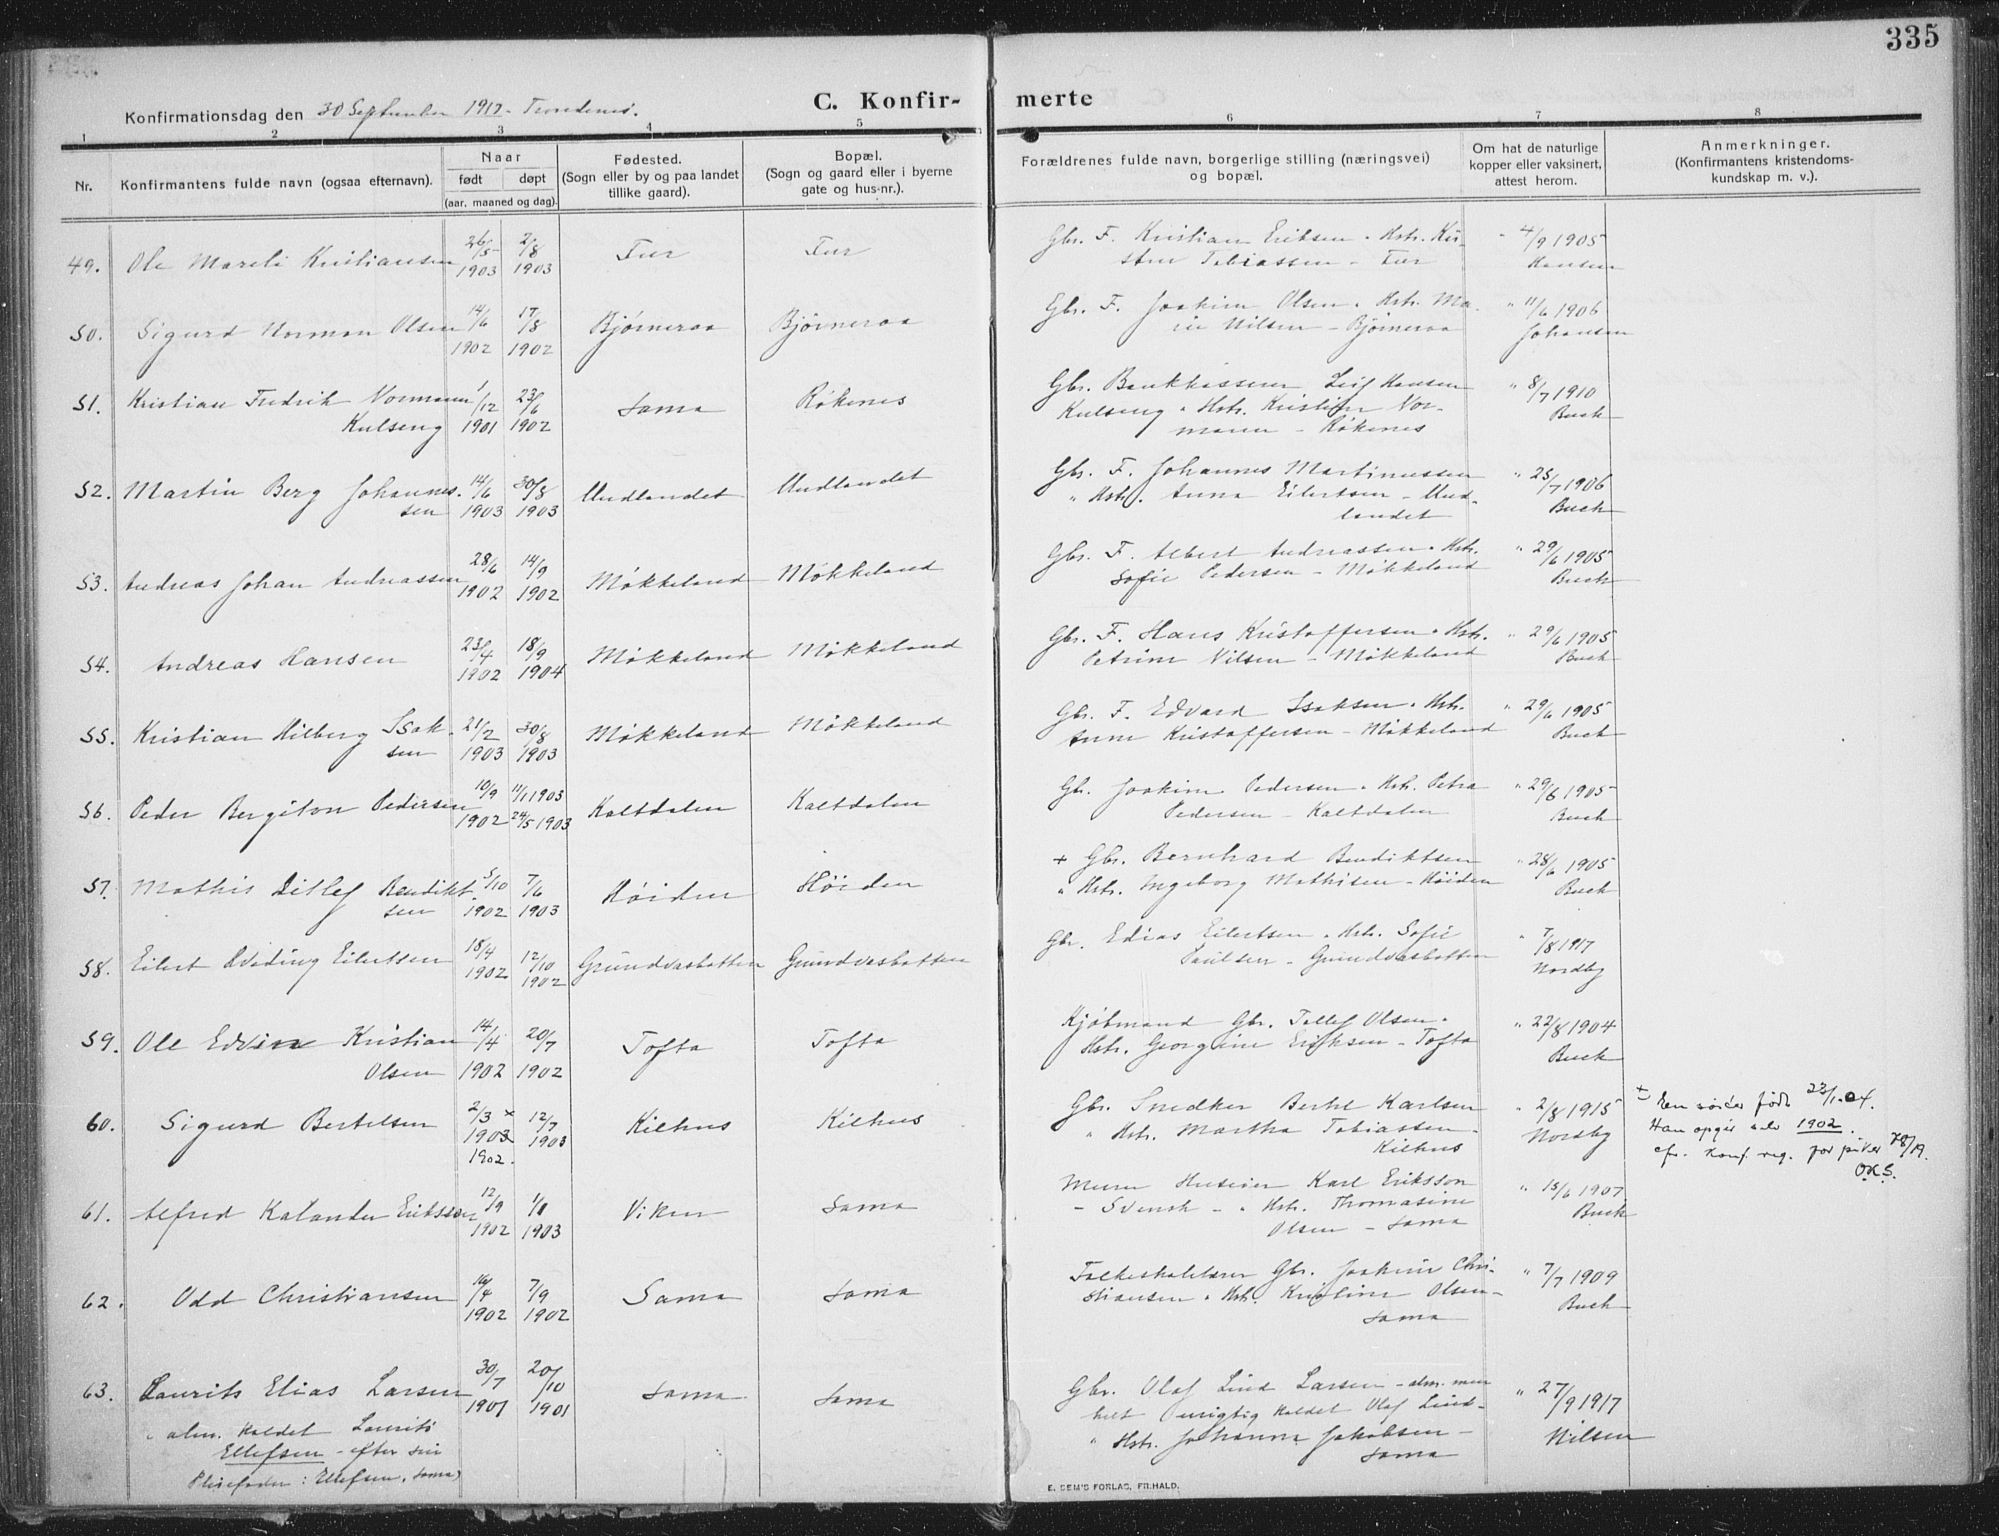 335
C. Konfir- merte
Konfirmationsdag den 30 September 1917 - Trondenes.
1 2 3 4 5 6 7 8
Nr. Konfirmantens fulde navn (ogsaa efternavn). Naar født døpt (aar, maaned og dag). Fødested. (Sogn eller by og paa landet tillike gaard). Bopæl. (Sogn og gaard eller i byerne gate og hus-nr.). Forældrenes fulde navn, borgerlige stilling (næringsvei) og bopæl. Om hat de naturlige kopper eller vaksinert, attest herom. Anmerkninger. (Konfirmantens kristendoms- kundskap m. v.).
49. Ole Mareli Kristiansen 26/5 1903 2/8 1903 Fur Fur Gbr. F. Kristian Eriksen. Hstr. Kir-
stine Tobiassen - Fur " 4/9 1905 Hansen
50. Sigurd Norman Olsen 14/6 1902 17/8 1902 Bjørneraa Bjørneraa Gbr. F. Joakim Olsen. Hstr. Ma-
rie Nilsen - Bjørneraa " 11/6 1906 Johansen
51. Kristian Fredrik Normann
Kulseng 1/12 1901 23/6 1902 Sama Røkenes Gbr. Bankkasserer Leif Hansen
Kulseng. Hstr. Kristine Nor-
mann - Røkenes " 8/7 1910 Buck
52. Martin Berg Johannes-
sen 14/6 1903 30/8 1903 Undlandet Undlandet Gbr. F. Johannes Martinussen
" Hstr. Anna Eilertsen - Und-
landet " 25/7 1906 Buck
53. Andreas Johan Andreassen 28/6 1902 14/9 1902 Møkkeland Møkkeland Gbr. F. Albert Andreassen. Hstr.
Sofie Pedersen - Møkkeland " 29/6 1905 Buck
54. Andreas Hansen 23/4 1902 18/9 1904 Møkkeland Møkkeland Gbr. F. Hans Kristoffersen. Hstr.
Petrine Nilsen - Møkkeland " 29/6 1905 Buck
55. Kristian Hilberg Isak-
sen 21/2 1903 30/8 1903 Møkkeland Møkkeland Gbr. F. Edvard Isaksen. Hstr.
Anne Kristoffersen - Møkkeland " 29/6 1905 Buck
56. Peder Bergiton Pedersen 10/9 1902 11/1 1903 24/5 1903 Kaltdalen Kaltdalen Gbr. Joakim Pedersen. Hstr. Petra
Pedersen - Kaltdalen " 29/6 1905 Buck
57. Mathis Ditlef Bendikt-
sen 5/10 1902 7/6 1903 Høiden Høiden + Gbr. Bernhard Bendiktsen
" Hstr. Ingeborg Mathisen - Høiden " 28/6 1905 Buck
58. Eilert Eilertsen 18/4 1902 12/10 1902 Grundvasbotten Grundvasbotten Gbr. Edias Eilertsen. Hstr. Sofie
Paulsen - Grundvasbotten " 7/8 1917 Nordby
59. Ole Edvin Kristian
Olsen 14/4 1902 20/7 1902 Tofta Tofta Kjøbmand Gbr. Tellef Olsen.
Hstr. Georgine Eriksen - Tofta " 22/8 1904 Buck
60. Sigurd Bertelsen 2/3 x 1903 1902. 12/7 1903 Kilhus Kilhus Gbr. Snedker Bertel Karlsen
" Hstr. Martha Tobiassen -
Kilhus " 2/8 1915 Nordby
+ En søster født 23/1-04.
Han opgir selv 1902.
cfr. konf. reg. for piker 28/19.
O.K.S.
61. Alfred Kalander Eriksson 12/9 1902 1/1 1903 Viken Sama Murer Huseier Karl Eriksson
- Svensk - " Hstr. Thomasine
Olsen - Sama " 15/6 1907 Buck
62. Odd Christiansen 16/4 1902 7/9 1902 Sama Sama Folkeskolelærer Gbr. Joakim Chri-
stiansen. Hstr. Kristine Olsen -
Sama " 7/7 1909 Buck
63. Laurits Elias Larsen 30/7 1901 20/10 1901 Sama Sama Gbr. Olaf Lind Larsen - alm. men
helt urigtig kaldet Olaf Lind -
" Hstr. Johanna Jakobsen -
Sama " 27/9 1917 Nilsen
alm. kaldet Laurits
Ellefsen - efter sin
Pleiefader: Ellefsen, Sama
E. SEM'S FORLAG, FR.HALD.